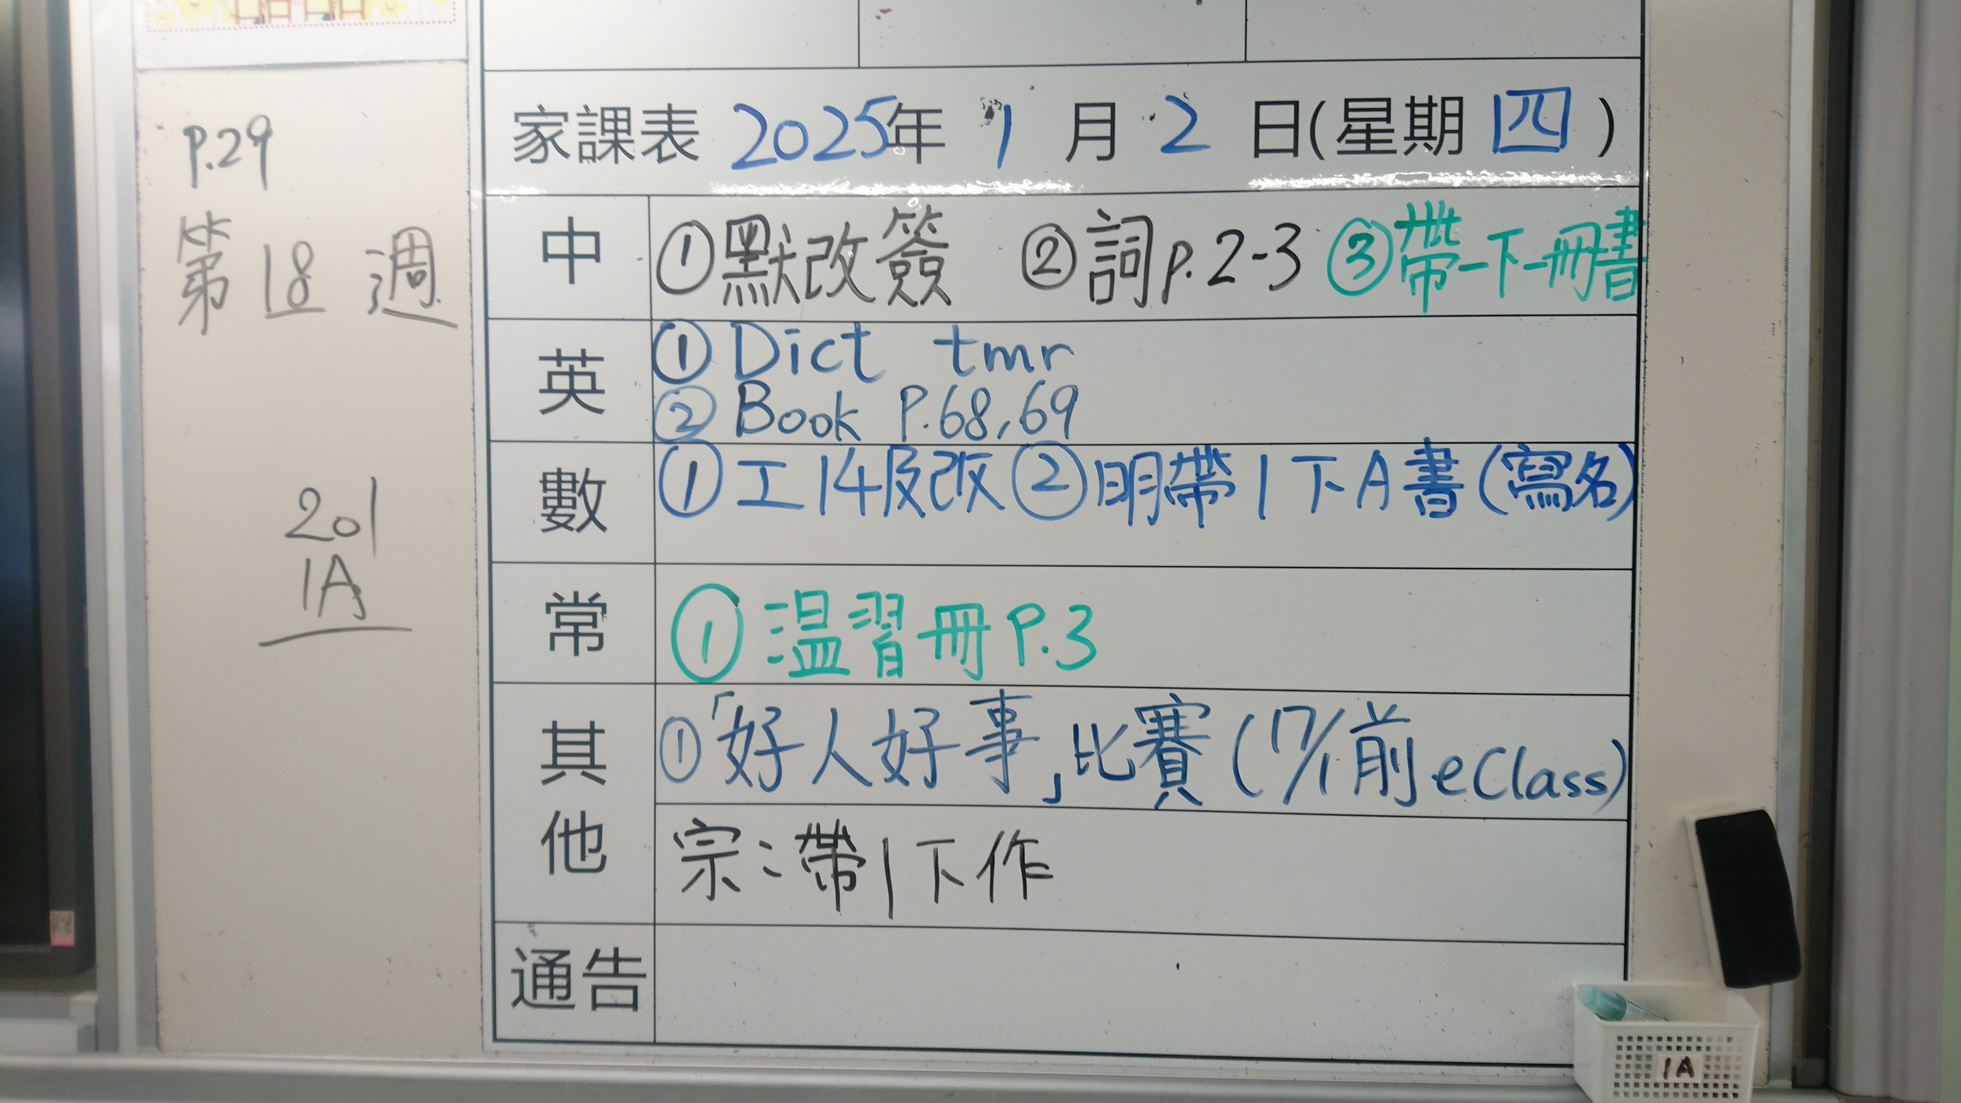 P.29
第18週
201
1A
家課表 2025年 1月 2日(星期四)
中 ①默改簽 ②詞p.2-3 ③帶一下一冊書
英 ① Dict tmr
② Book P.68,69
數 ①工14及改②明帶1下A書(寫名)
常 ①温習冊P.3
其他 ①「好人好事」比賽(17/1前eClass)
宗:帶1下作
通告
1A